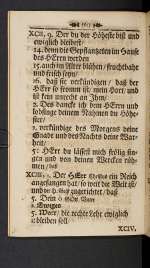 163
XCII. 9. Der du der Höheste bist und
ewiglich bleibest/
14. denn die Gepflantzeten im Hause
des HErrn werden
15. auch im Alter blühen/ fruchtbahr
und frisch seyn/
16. daß sie verkündigen/ daß der
HErr so fromm ist, mein Hort/ und ist
kein unrecht an Jhm/
2. Des dancke ich dem HErrn und
lobsinge deinem Nahmen du Höhe-
ster/
verkündige des Morgens deine
Gnade und des Nachts deine War-
heit/
5: HErr du lässest mich frölig sin-
gen und von deinen Wercken rüh-
men/
XCIII. Der HErr Christus ein Reich
angefangen hat/ so weit die Welt ist/
zugerichtet/ daß
5. Dein
2. Ewigen
5. Wort/ die rechte Lehre ewiglich
bleiben soll/
XCIV.